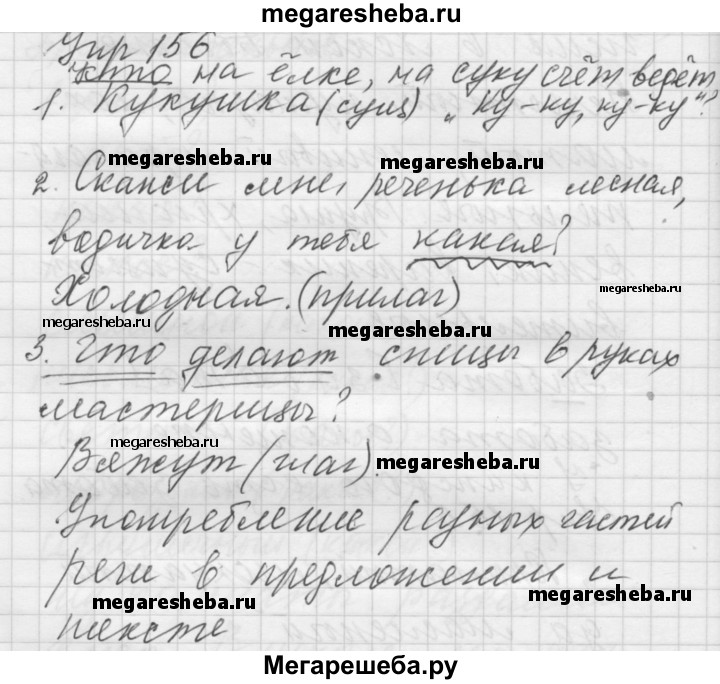 megaresheba.ru
Упр 156
кто на ёлке, на суку счёт ведёт
1. Кукушка (сущ) „Ку-ку, ку-ку"?
megaresheba.ru megaresheba.ru
2. Скажи мне, реченька лесная,
водичка у тебя какая?
Холодная. (прилаг) megaresheba.ru
megaresheba.ru megaresheba.ru
3. Что делают спицы в руках
мастерицы?
megaresheba.ru
Вяжут (глаг). megaresheba.ru
Употребление разных частей
речи в предложении и
megaresheba.ru megaresheba.ru
тексте
Мегарешеба.ру